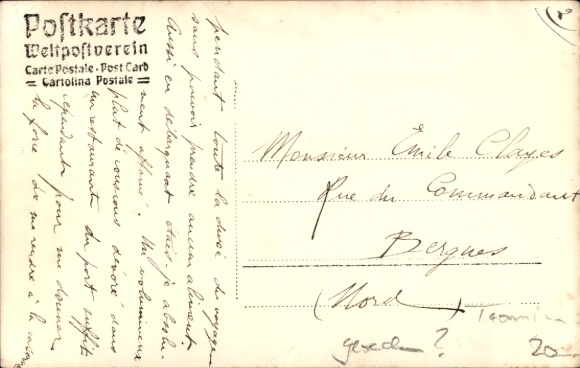 Postkarte
Weltpostverein
Carte Postale - Post Card
= Cartolina Postale =
pendant toute la durée du voyage
sans pouvoir prendre aucun aliment
Aussi en débarquant étais-je absolu-
ment affamé. Un volumineux
plat de couscous dévoré dans
un restaurant du port suffit
cependant pour me donner
la force de me rendre à la
Monsieur Émile Clayes
Rue du Commandant
Bergues
(Nord)
?
20